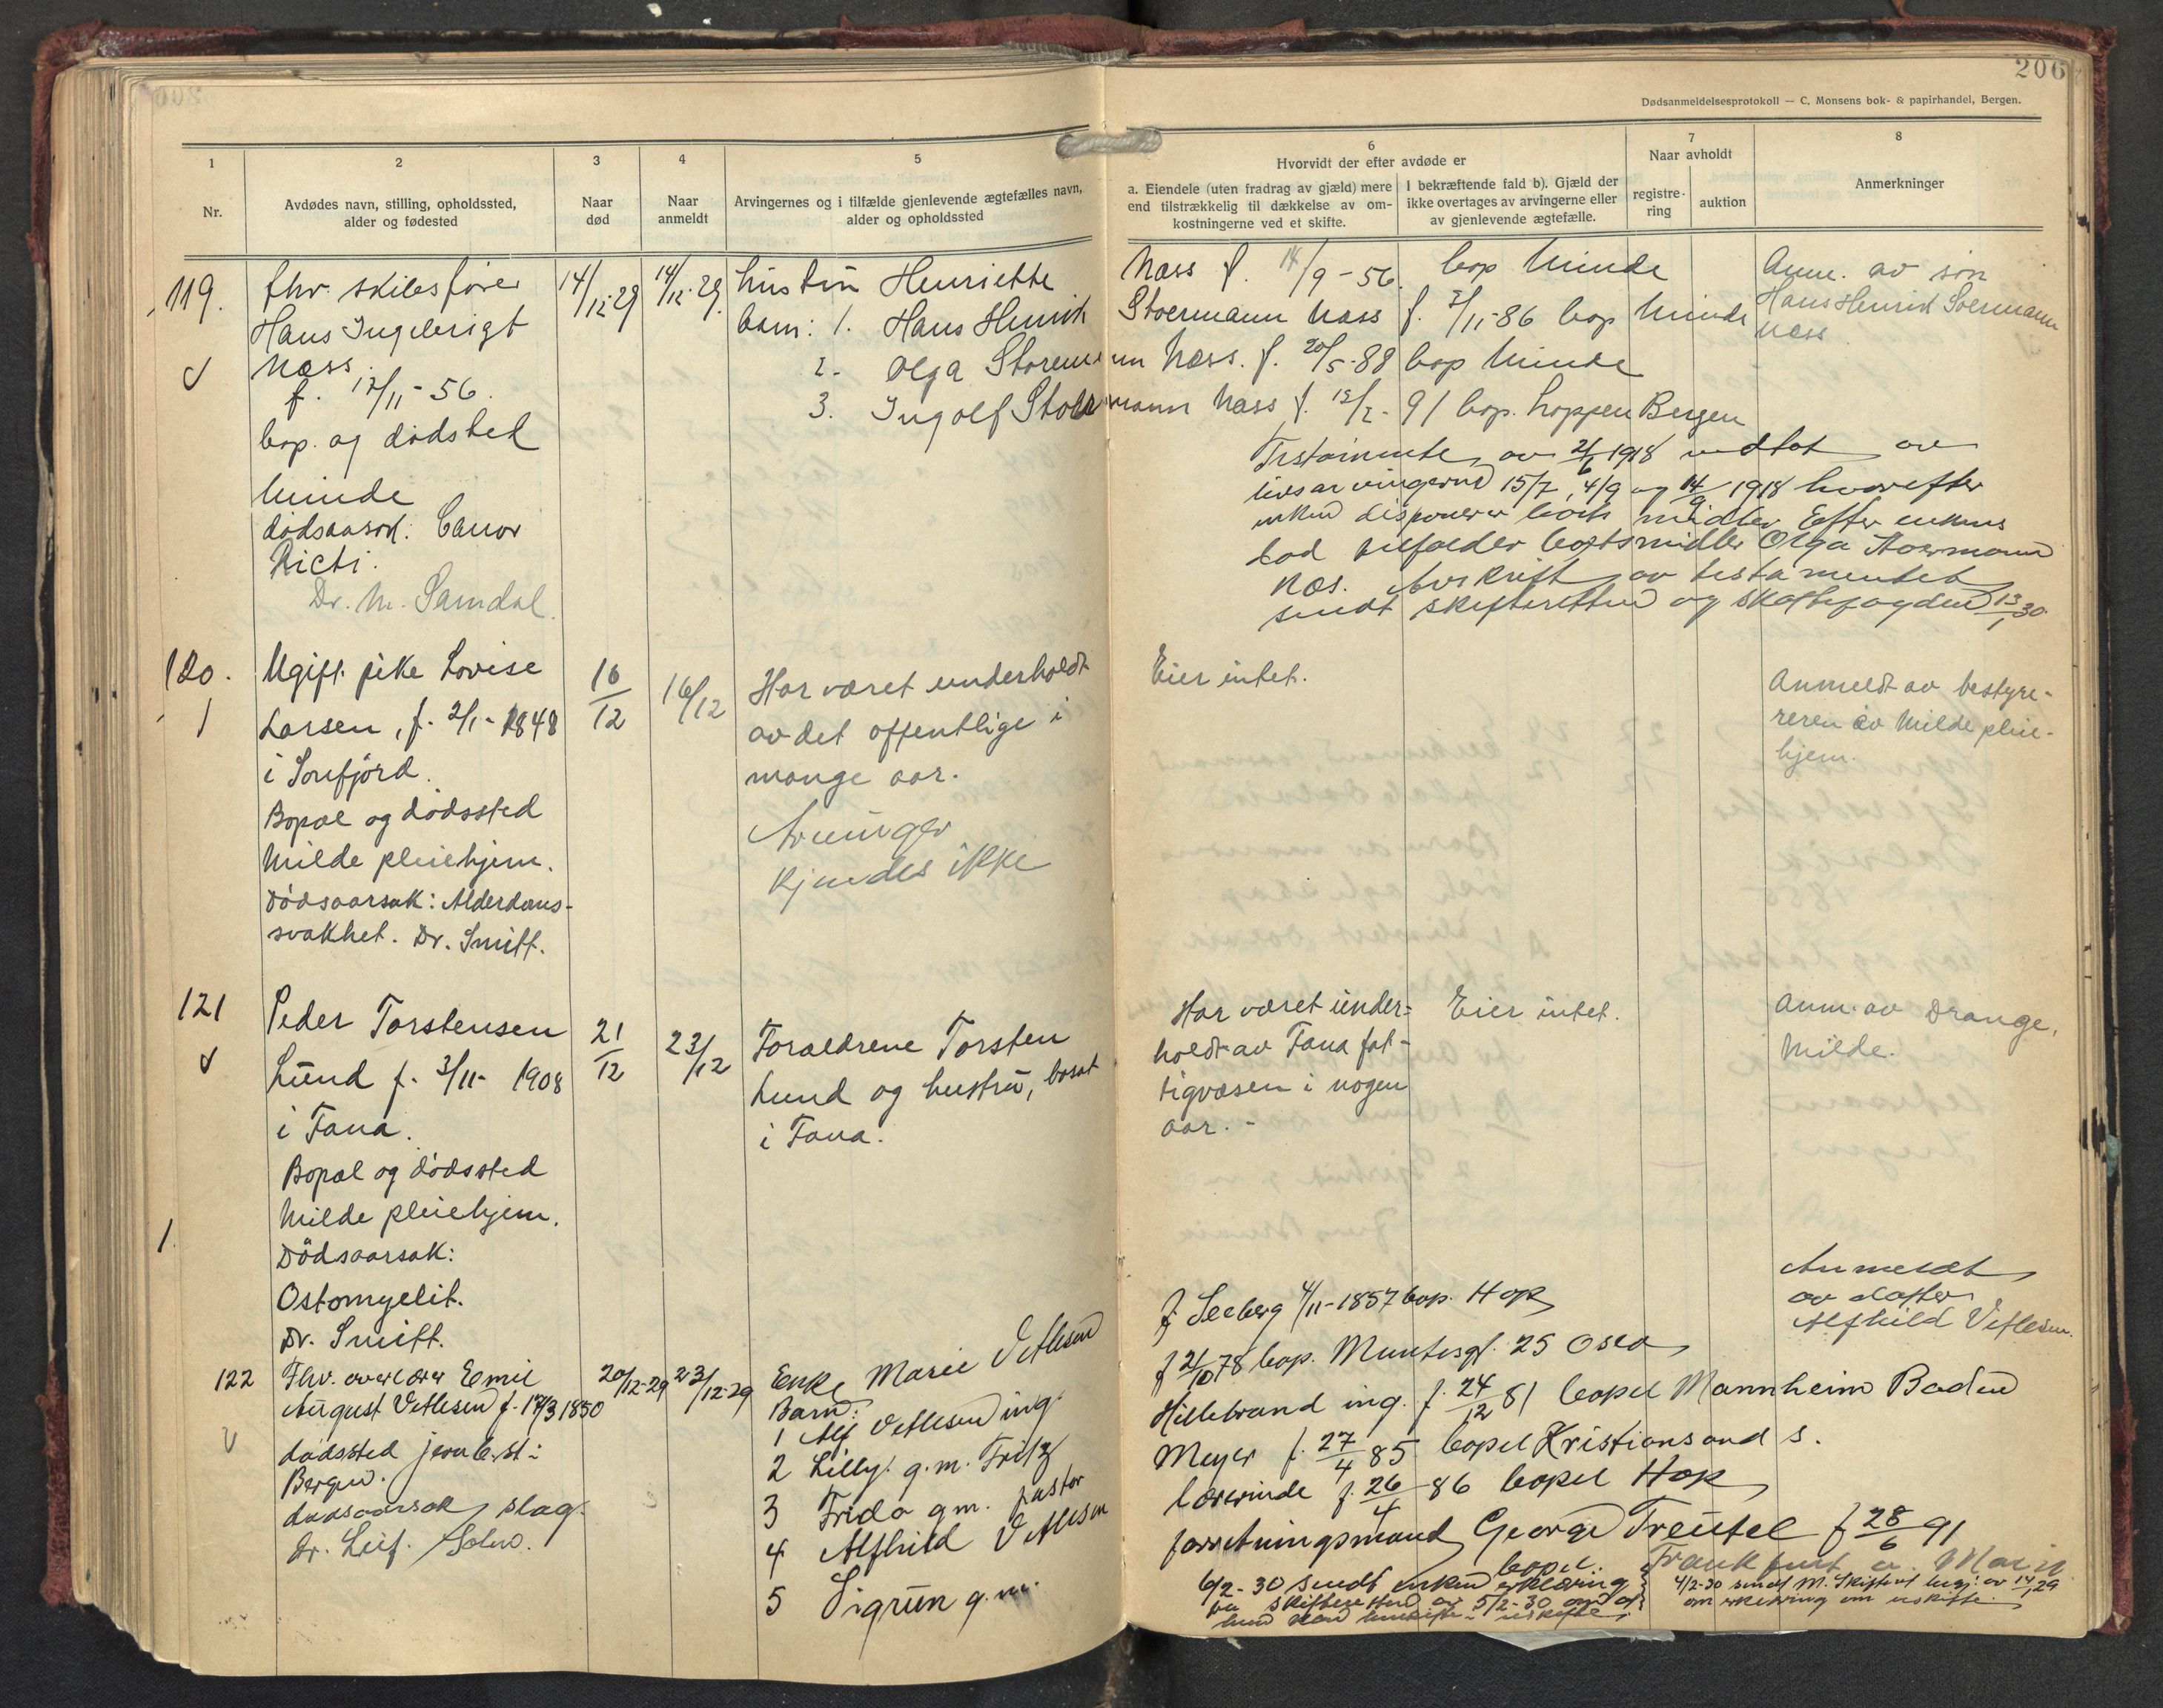 206
Dødsanmeldelsesprotokoll — C. Monsens bok- & papirhandel, Bergen.
1
2
3
4
5
6
7
8
Nr.
Avdødes navn, stilling, opholdssted,
alder og fødested
Naar
død
Naar
anmeldt
Arvingernes og i tilfælde gjenlevende ægtefælles navn,
alder og opholdssted
Hvorvidt der efter avdøde er
a. Eiendele (uten fradrag av gjæld) mere
end tilstrækkelig til dækkelse av om-
kostningerne ved et skifte.
I bekræftende fald b). Gjæld der
ikke overtages av arvingerne eller
av gjenlevende ægtefælle.
Naar avholdt
registre-
ring
auktion
Anmerkninger
119.
fhv. skibsfører
Hans Ingebrigt
Næss
f. 12/11-56.
bop. og dødsted
Minde
dødsaars.: Cancer
Recti.
Dr. M. Samdal.
14/12-29
14/12-29.
hustru Henriette Næss f. 14/9-56. bop Minde
barn: 1. Hans Henrik Stoermann Næss f. 2/11-86 bop Minde
2. Olga Stoermann Næss. f. 20/5-88 bop Minde
3. Ingolf Stoermann Næss f. 12/2-91 bop. Loppen Bergen
Testamente av 2/6 1918 vedtat av
livsarvingerne 15/7, 4/9 og 14/9 1918 hvorefter
enken disponerer boets midler. Efter enkens
død tilfalder boets midler Olga Stoermann
Næs. Avskrift av testamentet
sendt skifteretten og skattefogden 13/1 30.
Anm. av søn
Hans Henrik Stoermann
Næss
120.
Ugift pike Lovise
Larsen, f. 2/1-1848
i Sønfjord.
Bopæl og dødssted
Milde pleiehjem.
Dødsaarsak: Alderdoms-
svakhet. Dr. Smitt.
16/12
16/12
Har været underholdt
av det offentlige i
mange aar.
Arvinger
kjendes ikke
Eier intet.
Anmeldt av bestyre-
reren av Milde pleie-
hjem.
121
Peder Torstensen
Lund f. 3/11-1908
i Fana.
Bopæl og dødssted
Milde pleiehjem.
Dödsaarsak:
Ostomyelit.
Dr. Smitt.
21/12
23/12
Forældrene Torsten
Lund og hustru, bosat
i Fana.
Har været under-
holdt av Fana fat-
tigvæsen i nogen
aar.-
Eier intet.
Anm. av Drange,
Milde.
122
Fhv. overlærer Emil
August Vetlesen f. 17/3 1850
dødssted jernb.st.
Bergen.
dødsaarsak slag.
Dr. Leif
20/12-29
23/12-29
Enke Marie Vetlesen f. Seeberg 4/11-1857 bop. Hop
Barn:
1 Alf Vetlesen ing. f 2/10 78 bop. Muntesgt. 25 Oslo
2 Lilly g.m. Fritz Hillebrand ing. f. 24/12 81 bopel Mannheim Baden
3 Frida gm. pastor Meyer f. 27/4 85 bopel Kristiansand S.
4 Alfhild Vetlesen lærerinde f. 26/4 86 bopel Hop
5 Sigrun g.m. forretningsmand George Treutel f 28/6 91
bopel. Frankfurt a. Main
Anmeldt
av datter
Alfhild Vetlesen.
6/2-30 sendt enken erklæring
fra skifteretten av 5/2-30 om at
4/2-30 sendt M. Skifteret
om erklæring om uskifte.